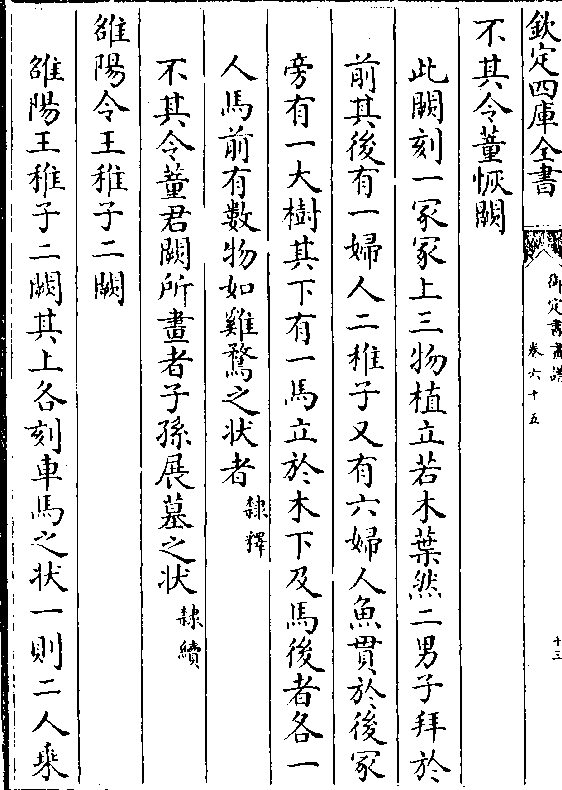 欽定四庫全書
御定書畫譜
卷六十五
十三
不其令董恢闕
此闕刻一冢冢上三物植立若木葉然二男子拜於
前其後有一婦人二稚子又有六婦人魚貫於後冢
旁有一大樹其下有一馬立於木下及馬後者各一
人馬前有數物如雞鶩之状者隸釋
不其令董君闕所畫者子孫展墓之状隸續
雒陽令王稚子二闕
雒陽王稚子二闕其上各刻車馬之状一則二人乘